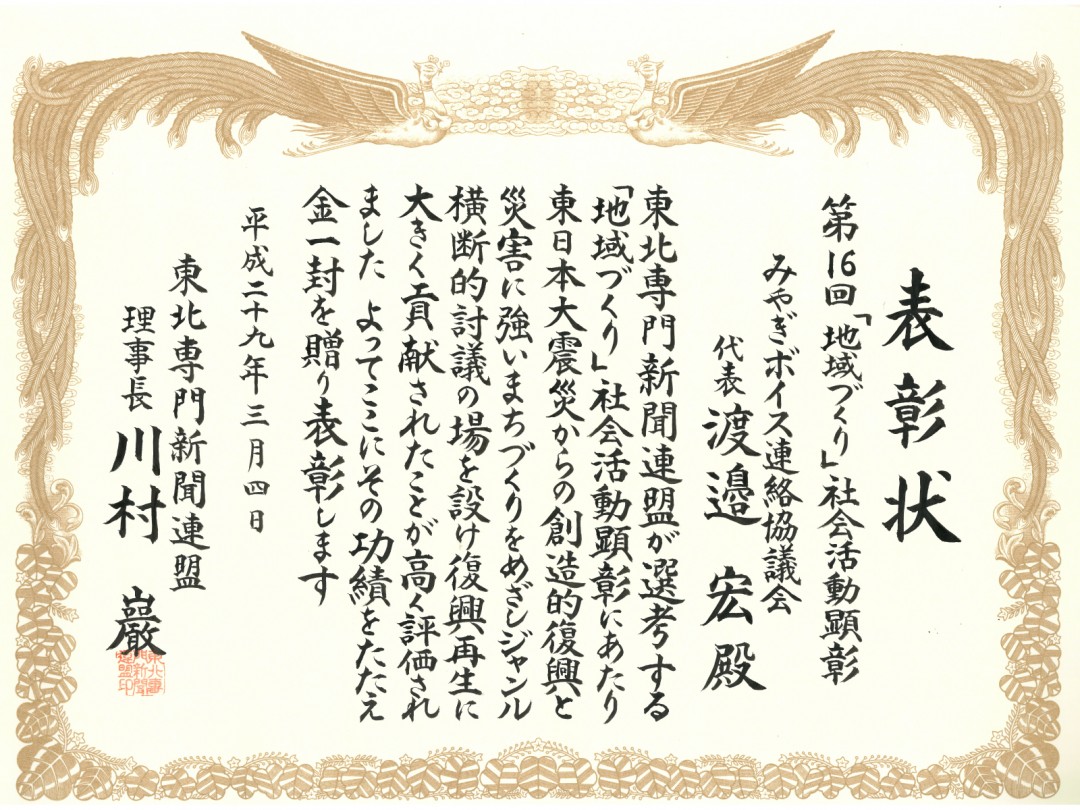 表彰状
第16回「地域づくり」社会活動顕彰
みやぎボイス連絡協議会
代表 渡邉 宏 殿
東北専門新聞連盟が選考する
「地域づくり」社会活動顕彰にあたり
東日本大震災からの創造的復興と
災害に強いまちづくりをめざしジャンル
横断的討議の場を設け復興再生に
大きく貢献されたことが高く評価され
ました よってここにその功績をたたえ
金一封を贈り表彰します
平成二十九年三月四日
東北専門新聞連盟
理事長 川村 巖
東北専門新聞連盟印